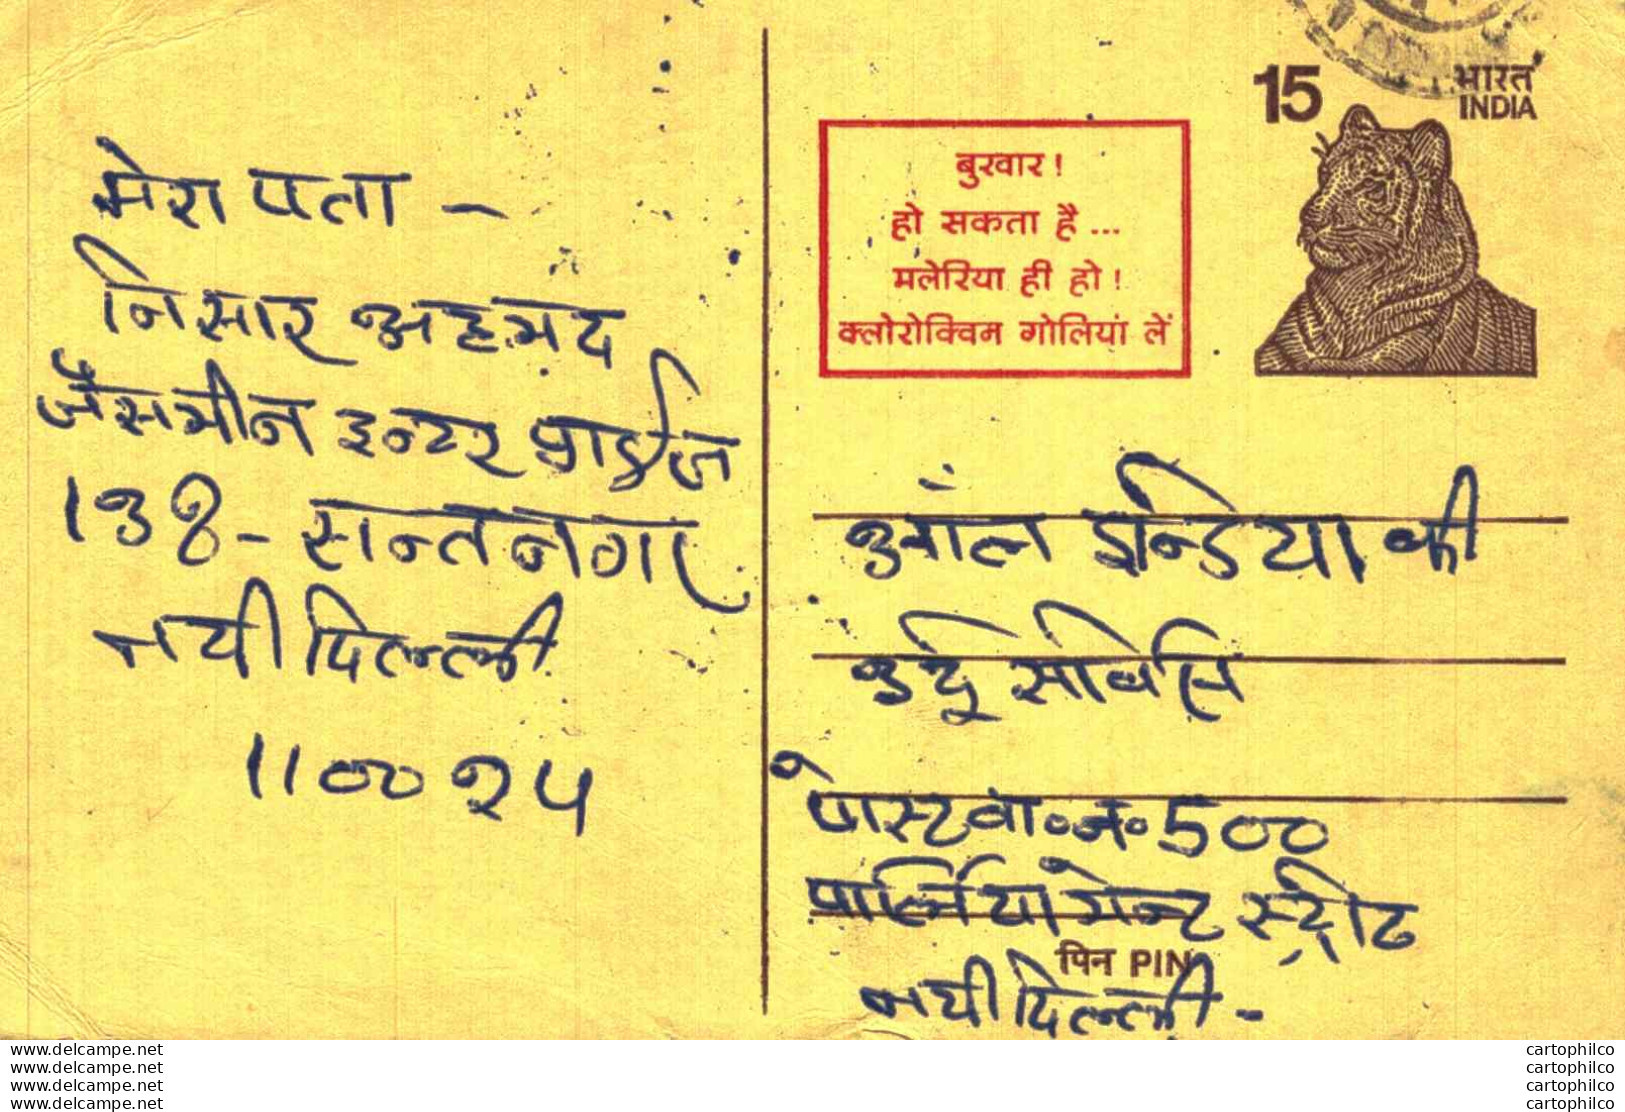 मेरा पता -
निसार अहमद
जैसमीन इन्टर प्राईज
138 - सन्तनगर
नयी दिल्ली
1100२५
15
भारत
INDIA
बुखार !
हो सकता है ...
मलेरिया ही हो !
क्लोरोक्विन गोलियां लें
आंल इन्डिया की
उर्दू सर्विस
पोस्ट वा॰ न॰ 500
पार्लियामेन्ट स्ट्रीट
पिन PIN
नयी दिल्ली -
www.delcampe.net
www.delcampe.net
www.delcampe.net
www.delcampe.net
cartophilco
cartophilco
cartophilco
cartophilco